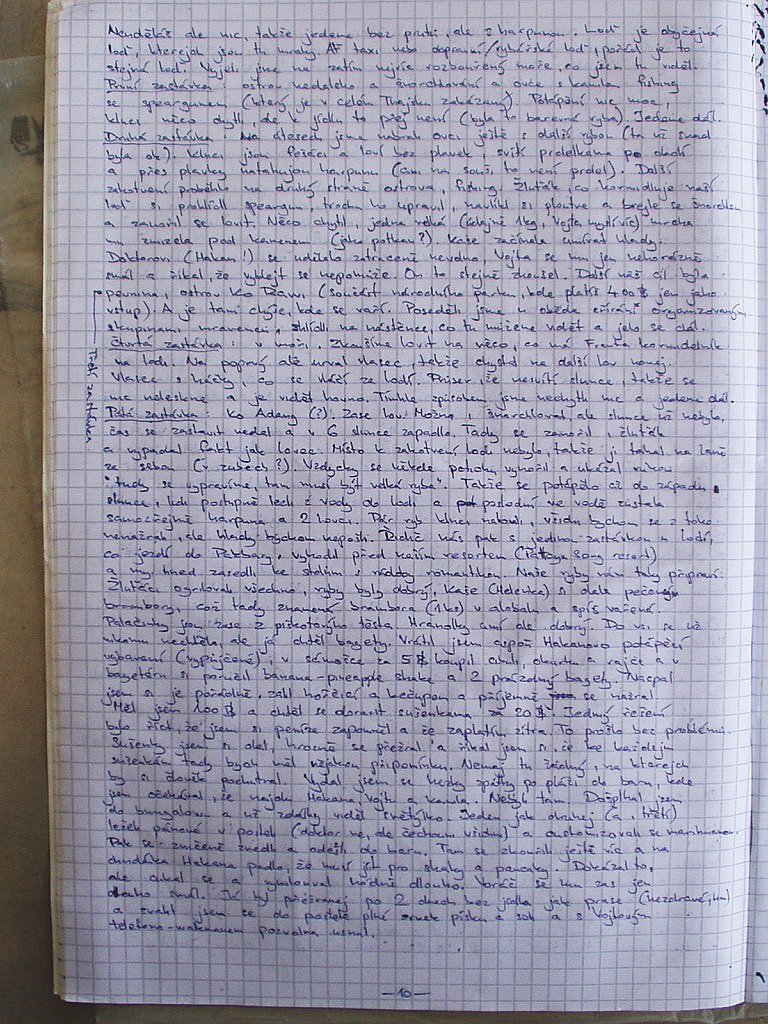 Neuděláš ale nic, takže jedeme bez prutů, ale s harpunou. Loď je obyčejná
loď, kterejch jsou tu mraky. Ať taxi nebo dopravní/rybářská loď, pořád je to
stejná loď. Vyjeli jsme na zatím nejvíc rozbouřený moře, co jsem tu viděl.
První zastávka: ostrov nedaleko a šnorchlování a ovce s kamilem fishing
se speargunem (který je v celém Thajsku zakázaný). Potápění nic moc,
kluci něco chytli, ale k jídlu to prej není (byla to barevná ryba). Jedeme dál.
Druhá zastávka: Na útesech jsme nabrali ovci ještě s další rybou (ta už snad
byla ok). Kluci jsou fešáci a loví bez plavek, svítí prdelkama po okolí
a přes plavky natahujou harpunu (am na souši to není prdel). Další
zakotvení proběhlo na druhý straně ostrova, fishing. Žluťák, co kormidluje naší
loď si prohlídl speargun, trochu ho upravil, navlíkl si ploutve a brejle se šnorchlem
a zanořil se lovit. Něco chytil, jedna velká (údajně 1kg, Vojta myslí víc) mrcha
mu zmizela pod kamenem (jako potkan?). Kaše začínala umírat hlady.
Doktorovi (Hakan!) se udělalo zatraceně nevolno, Vojta se mu jen nehorázně
smál a říkal, že vyblejt se nepomůže. On to stejně zkoušel. Další náš cíl byla
pevnina, ostrov Ko Rawi (součást národního parku, kde platíš 400฿ jen jako
vstup). A je tam chýše, kde se vaří. Poseděli jsme u oběda sžíráni organizovaným
skupinami mravenců, shlídli na nástěnce, co tu můžeme vidět a jelo se dál.
Třetí zastávka
Čtvrtá zastávka: v moři. Zkoušíme lovit na něco, co má Franta kormidelník
na lodi. Na poprvý ale urval vlasec, takže chystá na další lov novej.
Vlasec s háčky, co se vláčí za lodí. Průser, že nesvítí slunce, takže se
nic neleskne a je vidět hovno. Tímhle způsobem jsme nechytli nic a jedeme dál.
Pátá zastávka: Ko Adang (?). Zase lov. Možná i šnorchlovat, ale slunce už nebylo,
čas se zastavit nedal a v 6 slunce zapadlo. Tady se zanořil i žluťák
a vypadal fakt jak lovec. Místo k zakotvení lodi nebylo, takže ji tahal na laně
za sebou (v zubech?). Vždycky se někde potichu vynořil a ukázal rukou
"tudy se vypravíme, tam musí být velká ryba". Takže se potápělo až do západu
slunce, lidi postupně lezli z vody do lodi a poslední ve vodě zůstala
samozřejmě harpuna a 2 lovci. Pár ryb kluci nalovili, všichni bychom se z toho
nenažrali, ale hlady bychom nepošli. Řidič nás pak s jednou zastávkou u lodí,
co jezdí do Pakbary, vyhodil před naším resortem (Pattaya Song resort)
a my hned zasedli ke stolům s nádhy romantikou. Naše ryby nám taky připravili.
Žluťáci ogrilovali všechno, ryby byly dobrý, Kaše (Helenka) si dala pečený
brambory, což tady znamená brambora (1ks) v alobalu a spíš vařená.
Palačinky jsou zase z piškotového těsta. Hranolky umí ale dobrý. Do vsi se už
nikomu nechtělo, ale já chtěl bagety. Vrátil jsem aspoň Hakanovo potápěcí
vybavení (vypůjčené), v sámošce za 5฿ koupil cibuli, okurku a rajče a v
bagetérii si poručil banana-pineapple shake a 2 prázdný bagety. Nacpal
jsem si je pořádně, zalil hořčicí a kečupem a příjemně se nažral.
Měl jsem 100฿ a chtěl se dorazit sušenkama za 20฿. Jediný řešení
bylo říct, že jsem si peníze zapomněl a že zaplatím zítra. To prošlo bez problémů.
Sušenky jsem si dal, hrozně se přežral a říkal jsem si, že ke každejm
sušenkám tady bych měl nějakou připomínku. Nemaj tu žádný, na kterejch
by si člověk pochutnal. Vydal jsem se hezky zpátky po pláži do baru, kde
jsem očekával, že najdu Hakana, Vojtu a kamila. Nebyli tam. Došplhal jsem
do bungalovu a už zdálky viděl světýlko. Jeden jak druhej (a třetí)
ležej pánové v posteli (doktor ne, ale čechouni všichni) a customizovali se marihuanou.
Pak se zničeně zvedli a odešli do baru. Tam se zkouřili ještě víc a na
chudáka Hakana padlo, že musí jít pro shaky a pancaky. Dokázal to,
ale cukal se a vymlouval hodně dlouho. Voráč se mu zas jen
dlouho smál. Já byl přežranej po 2 dnech bez jídla jak prase (nezdravé, hm)
a svalil jsem se do postele plné zrnek písku a soli a s Vojtovým
telefono-walkmanem pozvolna usnul.
—10—